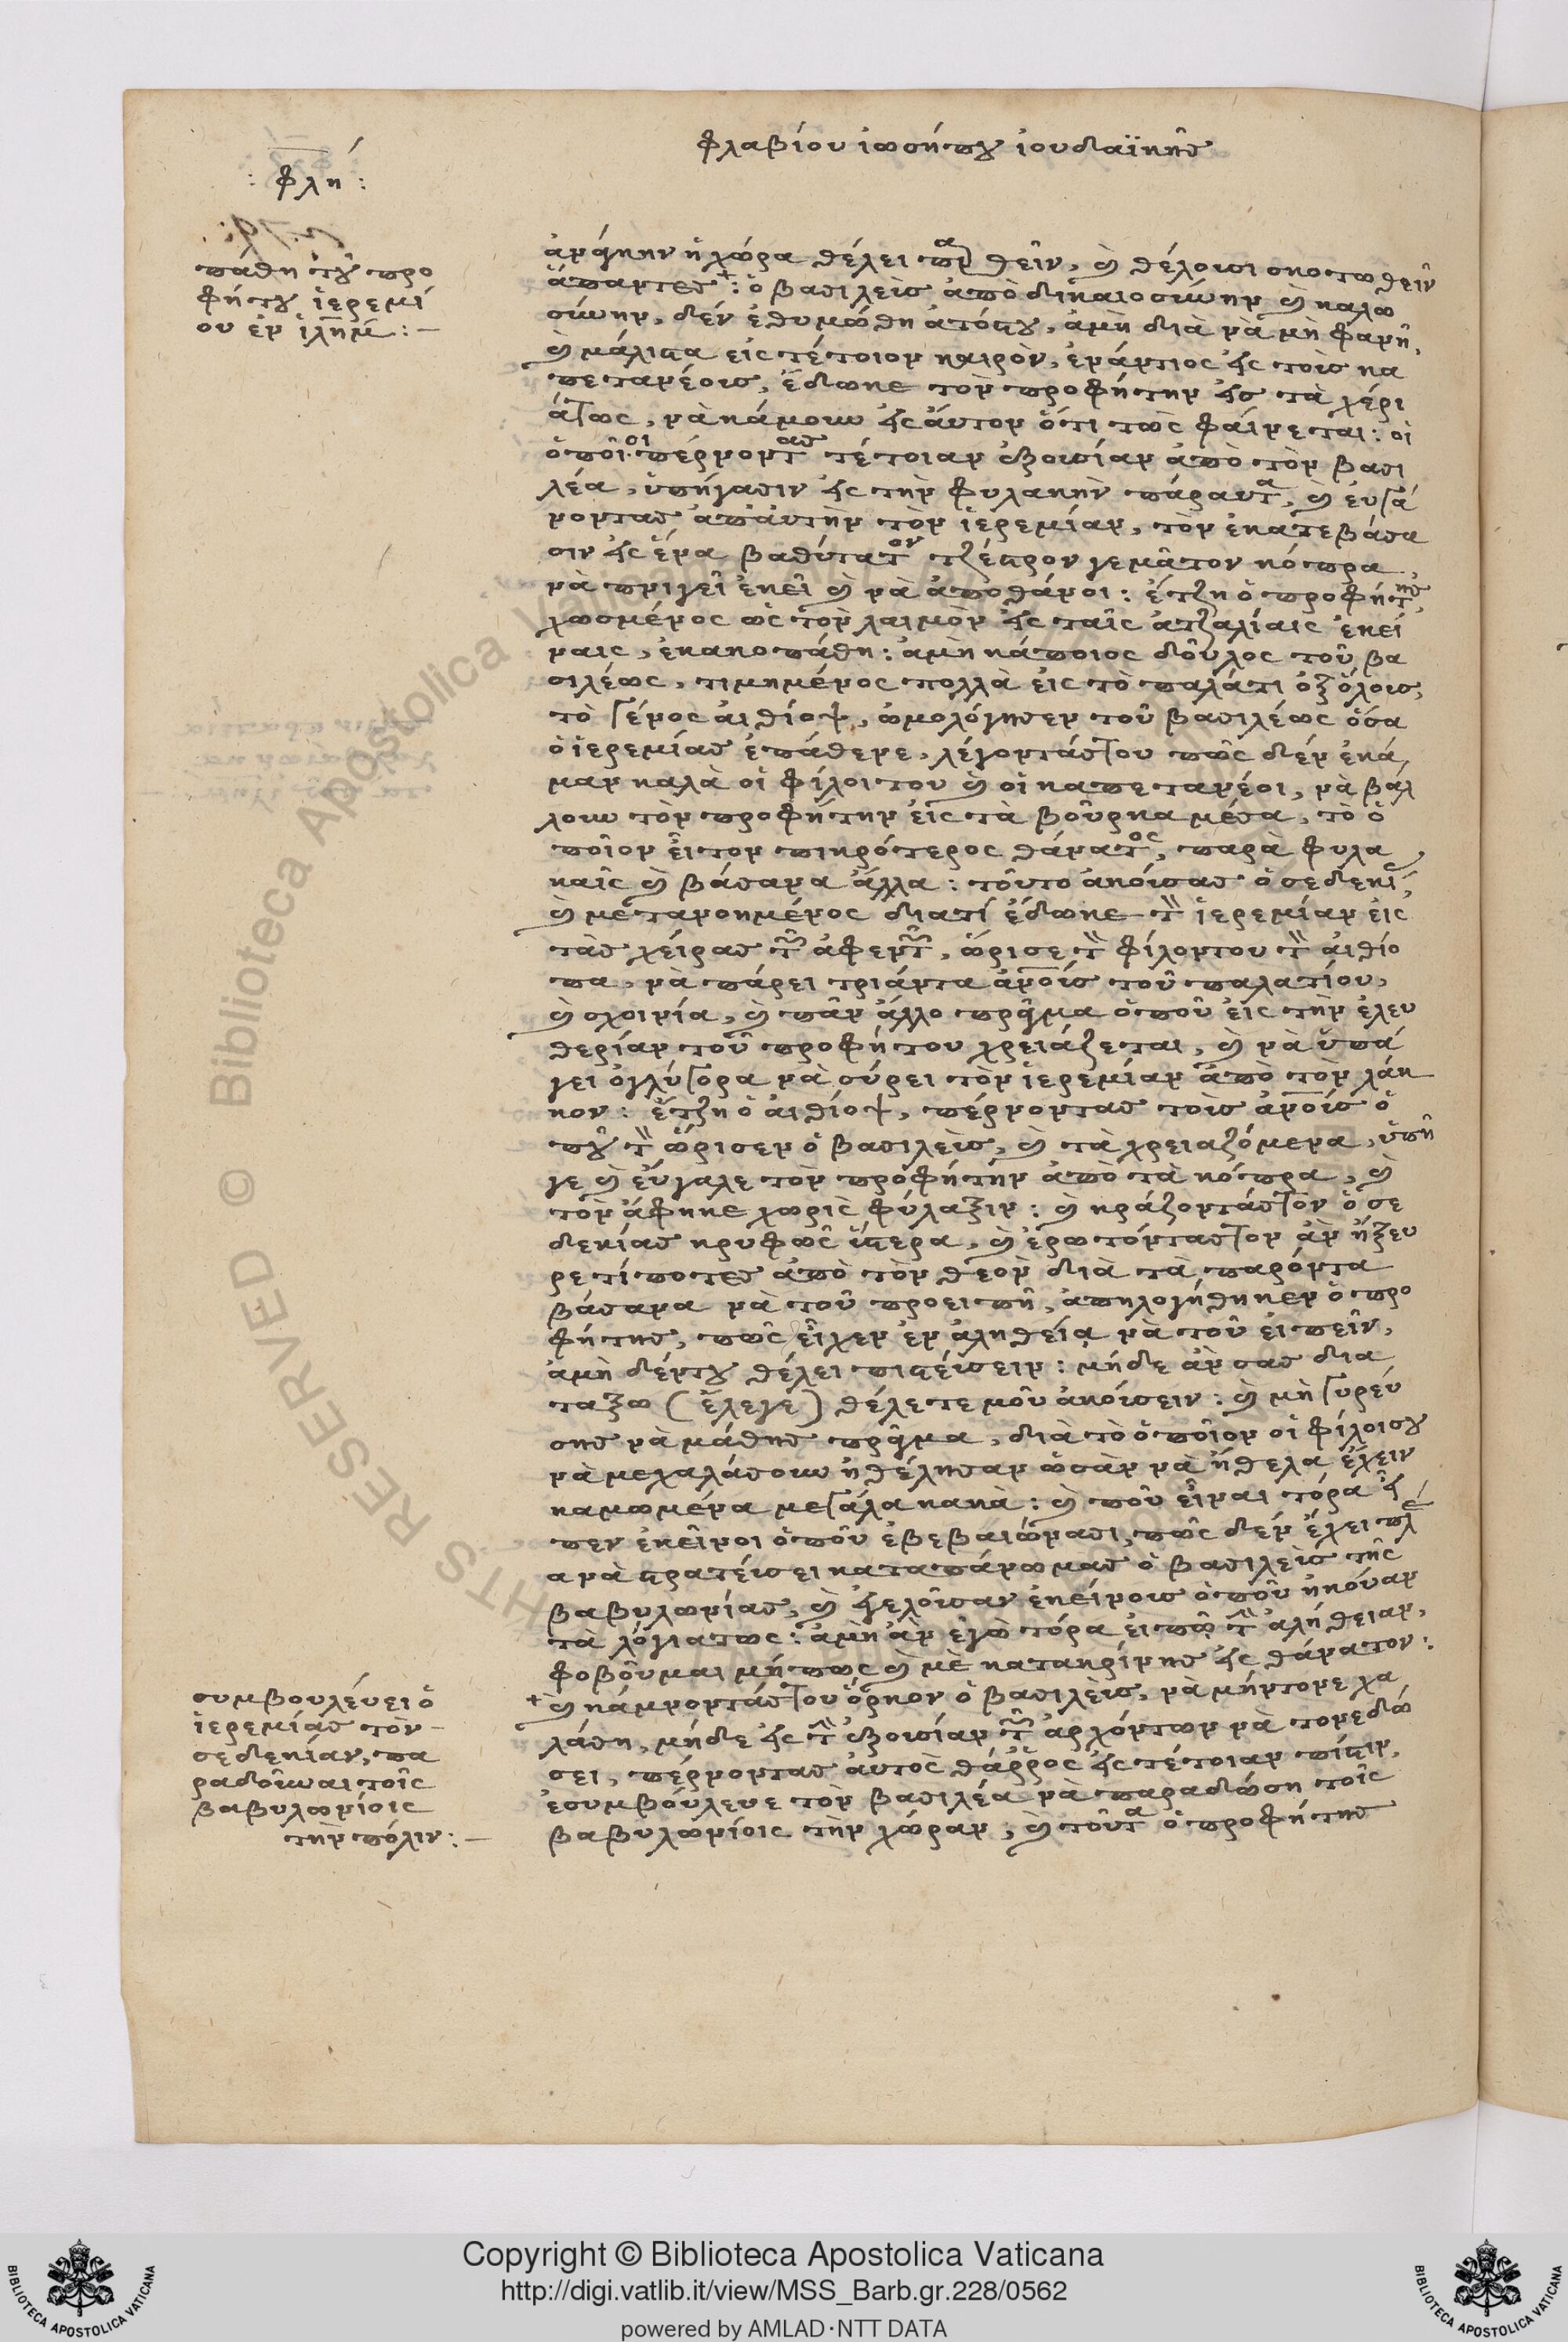 φλαβίου ἰωσήπου ἰουδαϊκῆς
: φλη :
πάθη τοῦ προ
φήτου ἱερεμί
ου ἐν ἱλημ : —
ἀνάγκην ἡ χώρα θέλει παρθεῖν, καὶ θέλουσι σκοτωθεῖν
ἅπαντες: ὁ βασιλεὺς ἀπὸ δικαιοσύνην καὶ καλω
σύνην, δὲν ἐθυμώθη ἀτόςου, ἀμὴ διὰ νὰ μὴ φανῆ,
καὶ μάλιστα εἰς τέτοιον καιρὸν, ἐνάντιος εἰς τοὺς κα
πετανέους, ἔδωκε τὸν προφήτην εἰς τὰ χέρι
άτως, νὰ κάμουν εἰς αὐτον ὅτι τῶς φαίνεται: οἱ
ὁποῖοι πέρνοντας τέτοιαν ἐξουσίαν ἀπὸ τὸν βασι
λέα, ὑπήγασιν εἰς τὴν φυλακὴν πάραυτα, καὶ εὐγά
νοντας ἀπ' αὐτὴν τὸν ἱερεμίαν, τὸν ἐκατεβάσα
σιν εἰς ἕνα βαθύτατον τζέστρον γεμᾶτον κόπρα,
νὰ πνιγεῖ ἐκεῖ καὶ νὰ ἀποθάνοι: ἔτζη ὁ προφήτης
χωσμένος ὡς τὸν λαιμὸν εἰς ταῖς ἀτζαλίαις ἐκεί
ναις, ἐκακοπάθη: ἀμὴ κάποιος δοῦλος τοῦ βα
σιλέως, τιμημένος πολλὰ εἰς τὸ παλάτι ὀξόλους,
τὸ γένος αἰθίοψ, ὡμολόγησεν τοῦ βασιλέως ὅσα
ὁ ἱερεμίας ἐπάθενε, λέγοντάςτου πῶς δὲν ἐκά
μαν καλὰ οἱ φίλοι του καὶ οἱ καπετανέοι, νὰ βάλ
λουν τὸν προφήτην εἰς τὰ βοῦρκα μέσα, τὸ ὁ
ποῖον εἶτον πικρότερος θάνατος, παρὰ φυλα
καῖς καὶ βάσανα ἄλλα: τοῦτο ἀκούσας ὁ σεδεκί,
καὶ μετανοημένος διατί ἔδωκε τὸν ἱερεμίαν εἰς
τὰς χείρας τῶν ἀφεντῶν, ὥρισε τὸν φίλοντου τὸν αἰθίο
πα, νὰ πάρει τριάντα ἀνοὺς τοῦ παλατίου,
καὶ σχοινία, καὶ πᾶν ἄλλο πρᾶγμα ὁποῦ εἰς τὴν ἐλευ
θερίαν τοῦ προφήτου χρειάζεται, καὶ νὰ ὑπά
γει ὀγλύγορα νὰ σύρει τὸν ἱερεμίαν ἀπὸ τὸν λάκ
κον: ἔτζη ὁ αἰθίοψ, πέρνοντας τοὺς ἀνοὺς ὁ
ποῦ τὸν ὥρισεν ὁ βασιλεὺς, καὶ τὰ χρειαζόμενα, ὑπῆ
γε καὶ εὔγαλε τὸν προφήτην ἀπὸ τὰ κόπρα, καὶ
τὸν ἄφηκε χωρὶς φύλαξιν: καὶ κράζοντάςτον ὁ σε
δεκίας κρυφῶς ὕστερα, καὶ ἐρωτόντας τον ἂν ἤξευ
ρε τίποτες ἀπὸ τὸν θεὸν διὰ τὰ παρόντα
βάσανα νὰ τοῦ προειπῆ, ἀπηλογήθηκεν ὁ προ
φήτης, πῶς εἶχεν ἐν ἀληθεία νὰ τοῦ εἰπεῖν,
ἀμὴ δέντου θέλει πιστεύσειν: μήδε ἂν σας δια
ταξω (ἔλεγε) θέλετε μοῦ ἀκούσειν: καὶ μὴ γυρεύ
σης νὰ μάθης πρᾶγμα, διὰ τὸ ὁποῖον οἱ φίλοισου
νὰ μεχαλάσουν ἠθέλησαν ὡσὰν νὰ ἤθελα ἔχειν
καμωμένα μεγάλα κακὰ: καὶ ποῦ εἶναι τόρα εἶ
πεν ἐκεῖνοι ὁποῦ ἐβεβαιώνασι, πῶς δὲν ἔχει πλέ
α νὰ στρατεύσει καταπάνωμας ὁ βασιλεὺς τῆς
βαβυλωνίας, καὶ ἐγελοῦσαν ἐκείνους ὁποῦ ἠκούαν
τὰ λόγιατως: ἀμὴ ἂν ἐγὼ τόρα εἰπῶ τὴν ἀλήθειαν,
φοβοῦμαι μήπως καὶ μὲ κατακρίνης εἰς θάνατον:
καὶ κάμνοντάςτου ὅρκον ὁ βασιλεὺς, νὰ μήντονε χα
λάση, μήδε εἰς τὴν ἐξουσίαν τῶν ἀρχόντων νὰ τονεδώ
σει, πέρνοντας αὐτὸς θάῤῥος εἰς τέτοιαν πίστιν,
ἐσυμβούλευε τὸν βασιλέα νὰ παραδώση τοῖς
βαβυλωνίοις τὴν χώραν, καὶ τοῦτα ὁ προφήτης
συμβουλέυει ὁ
ἱερεμίας τὸν
σεδεκίαν, πα
ραδοῦναι τοῖς
βαβυλωνίοις
τὴν πόλιν: —
Copyright © Biblioteca Apostolica Vaticana
http://digi.vatlib.it/view/MSS_Barb.gr.228/0562
powered by AMLAD·NTT DATA